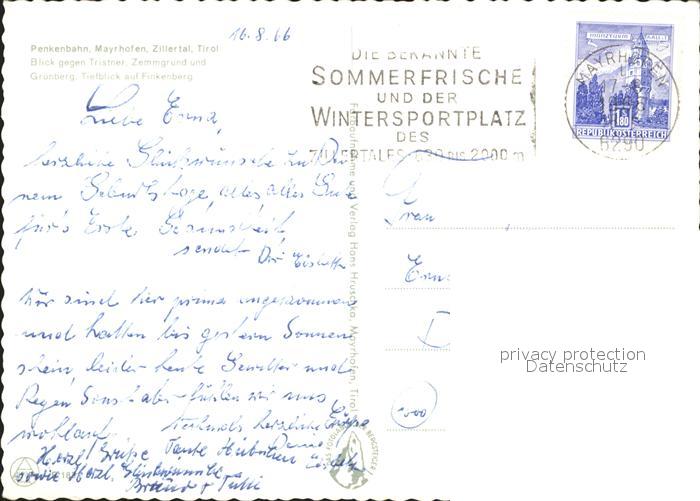 16.8.66
Penkenbahn, Mayrhofen, Zillertal, Tirol
Blick gegen Tristner, Zemmgrund und
Grünberg. Tiefblick auf Finkenberg.
DIE BEKANNTE
SOMMERFRISCHE
UND DER
WINTERSPORTPLATZ
DES
ZILLERTALES 630 BIS 2000 m
MAYRHOFEN
6290
MÜNZTURM HALL I. T.
1.80
REPUBLIK ÖSTERREICH
Liebe Erna,
herzliche Glückwünsche zu Dei
nem Geburtstage, alles alles Gute
für's Erste Gesundheit
sendet Dir
Wir sind hier prima angekommen
und hatten bis gestern Sonnen
schein, leider heute Gewitter und
Regen. Sonst aber fühlen wir uns
wohlauf. Nochmals herzliche Grüße
Herzl. Grüße Tante
sowie Herzl. Glückwünsche
Frau
Fotoaufnahme und Verlag Hans Hruschka, Mayrhofen, Tirol
privacy protection
Datenschutz